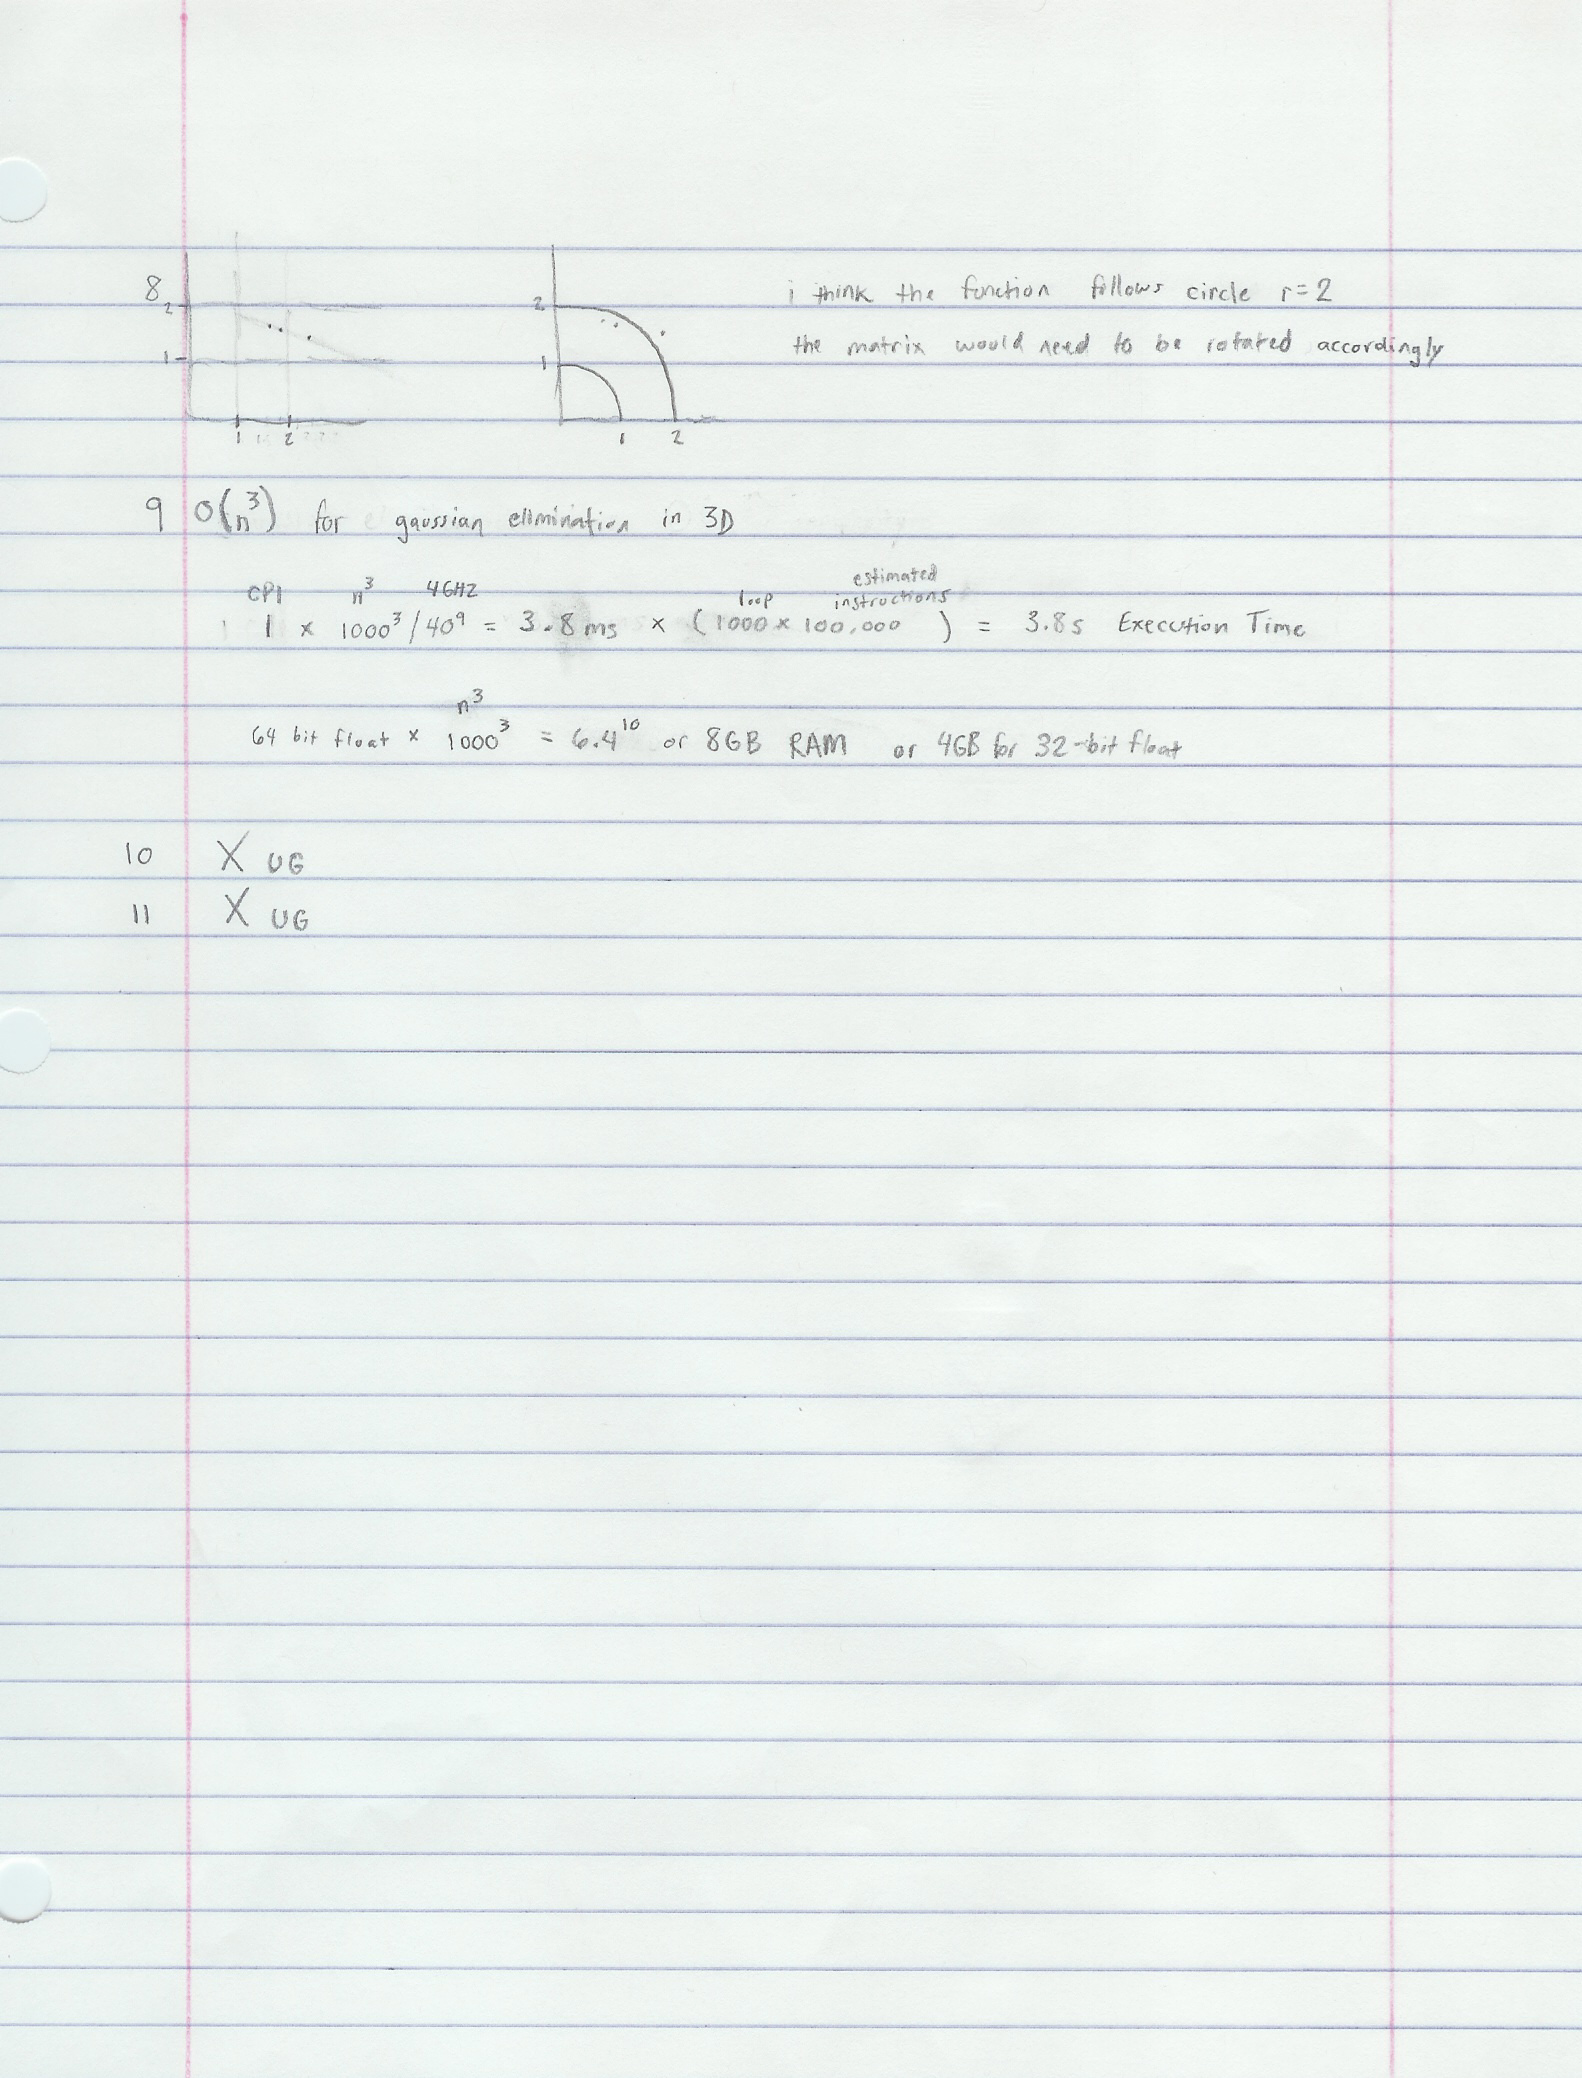 8
2
1
1 2
2
1
1 2
i think the function follows circle r=2
the matrix would need to be rotated accordingly
9 O(n³) for gaussian elimination in 3D
CPI n³ 4GHZ loop estimated instructions
1 x 1000³/40⁹ = 3.8 ms x (1000 x 100,000 ) = 3.8s Execution Time
n³
64 bit float x 1000³ = 6.4¹⁰ or 8GB RAM or 4GB for 32-bit float
10 X UG
11 X UG